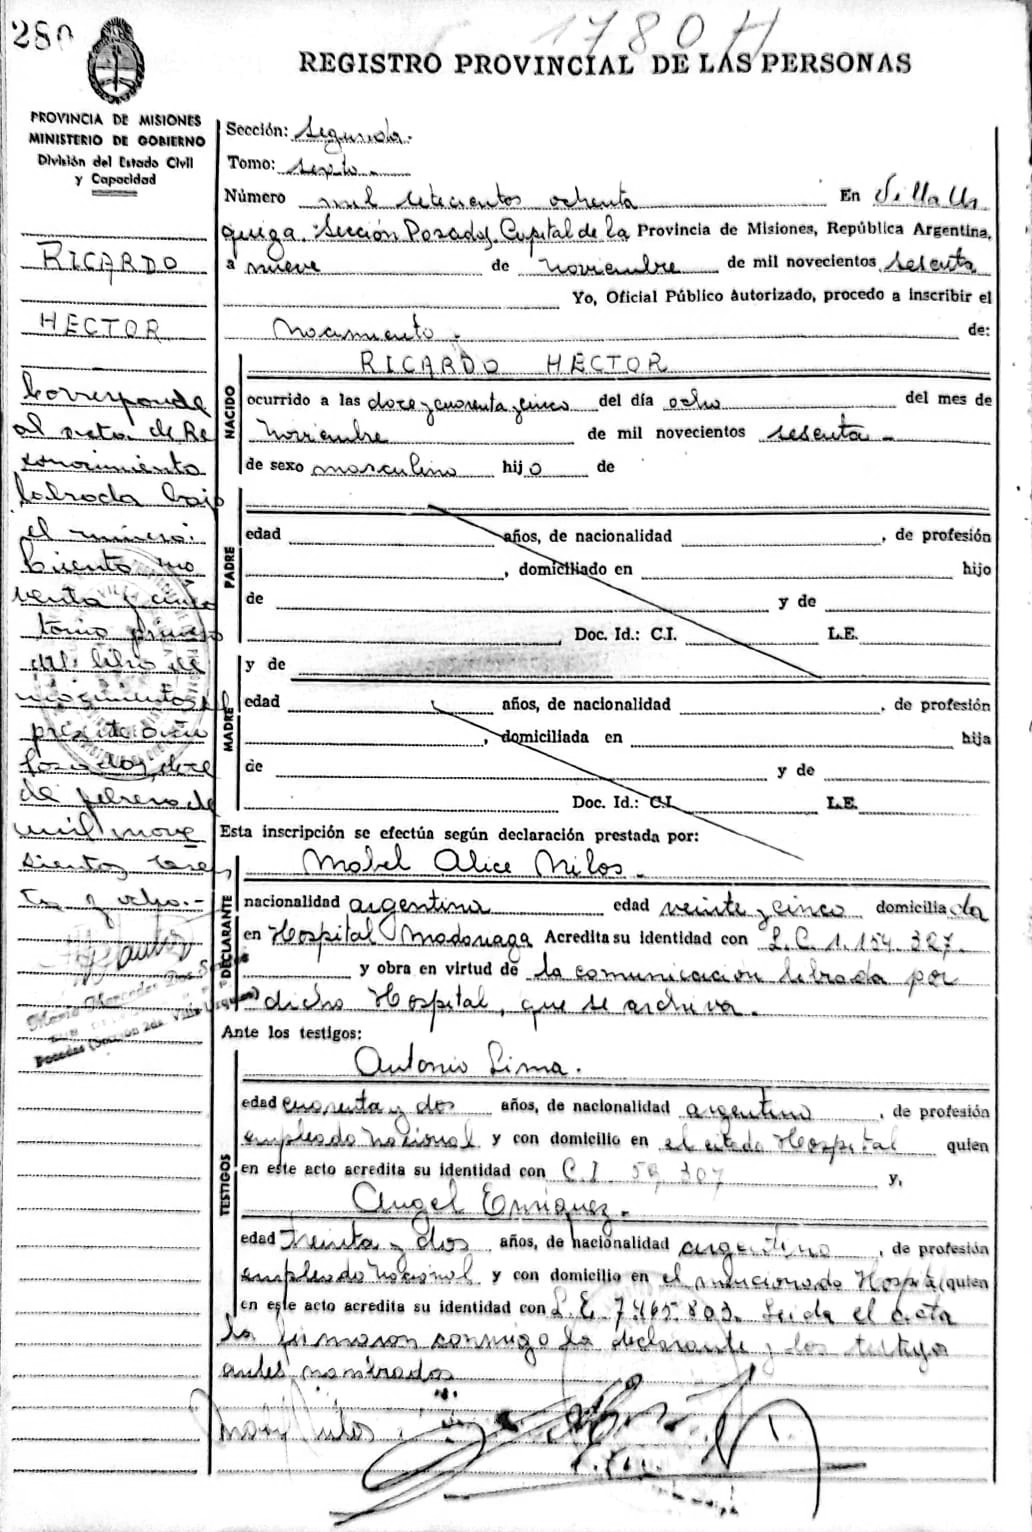 280
1780 H
REGISTRO PROVINCIAL DE LAS PERSONAS
PROVINCIA DE MISIONES
MINISTERIO DE GOBIERNO
División del Estado Civil
y Capacidad
RICARDO
HECTOR
Corresponde
al acta de Re
conocimiento
labrada bajo
el número:
Ciento no
venta y cinco
tomo primero
del libro de
presente año
Posadas, doce
de febrero de
mil nove
cientos sesen
ta y ocho.-
Posadas (Sección 2da. Villa Urquiza)
Sección: Segunda.
Tomo: sexto
Número mil setecientos ochenta En Villa Ur
quiza. Sección Posadas, Capital de la Provincia de Misiones, República Argentina,
a nueve de noviembre de mil novecientos sesenta
Yo, Oficial Público autorizado, procedo a inscribir el
Nacimiento. de:
NACIDO
RICARDO HECTOR
ocurrido a las doce y cuarenta y cinco del día ocho del mes de
Noviembre de mil novecientos sesenta
de sexo masculino hijo de
PADRE
edad años, de nacionalidad , de profesión
, domiciliado en hijo
de y de
Doc. Id.: C.I. L.E.
MADRE
y de
edad años, de nacionalidad , de profesión
, domiciliada en hija
de y de
Doc. Id.: C.I. L.E.
Esta inscripción se efectúa según declaración prestada por:
DECLARANTE
Mabel Alice Milos.
nacionalidad argentina edad veinte y cinco domiciliada
en Hospital Madariaga Acredita su identidad con L.C. 1.154.327.
y obra en virtud de la comunicación librada por
dicho Hospital, que se archiva.
Ante los testigos:
TESTIGOS
Antonio Lima.
edad cuarenta y dos años, de nacionalidad argentino , de profesión
empleado nacional y con domicilio en el citado Hospital quien
en este acto acredita su identidad con C.I 59,307 y,
Angel Enriquez.
edad treinta y dos años, de nacionalidad argentino , de profesión
empleado nacional y con domicilio en el mencionado Hospital quien
en este acto acredita su identidad con L.E. 7.465.803. Leída el acta
la firmaron conmigo la declarante y los testigos
antes nombrados